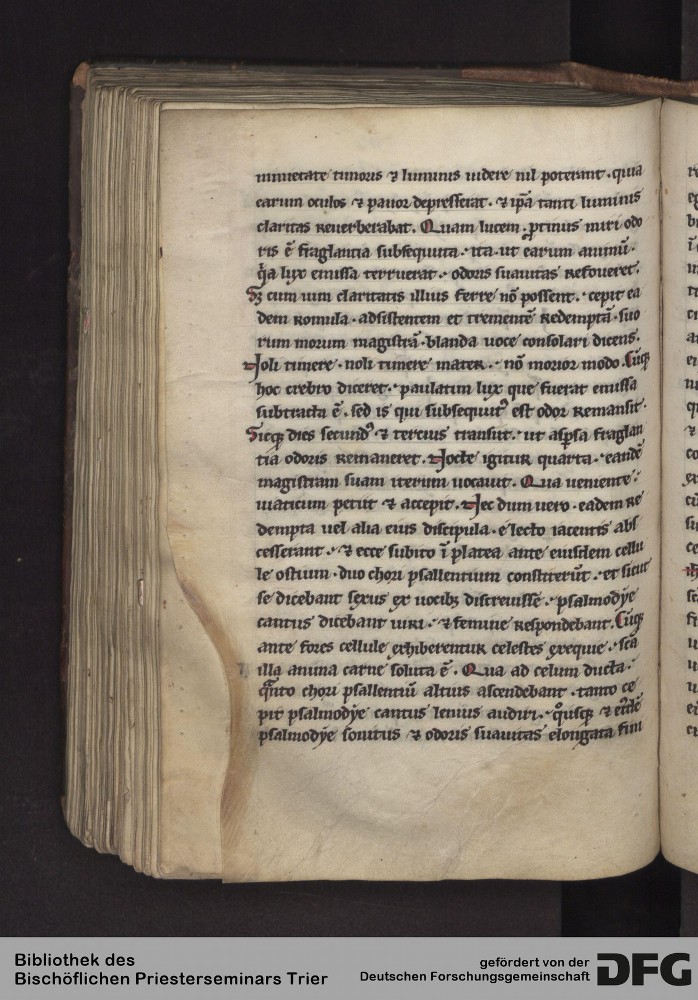 inmietate timoris ⁊ luminis uidere nil poterant. quia
earum oculos ⁊ pauor depresserat. ⁊ ip̄a tanti luminis
claritas reuerberabat. Quam lucem. ꝓtinus miri odo
ris ē fraglantia subsequuta. ita. ut earum animū.
q̓a lux emissa terruerat. odoris suauitas refoueret.
Sꝫ cum uim claritatis illius ferre nō possent. cepit ea
dem romula. adsistentem et trementē redemptā. suo
rum morum magistrā. blanda uoce consolari dicens.
Noli timere. noli timere mater. nō morior modo. Cūqꝫ
hoc crebro diceret. paulatim lux que fuerat emissa
subtracta ē. sed is qui subsequutꝰ est odor remansit.
Sicqꝫ dies secundꝰ ⁊ tercius transiit. ut asp̄sa fraglan
tia odoris remaneret. Nocte igitur quarta. eandē
magistram suam iterum uocauit. Qua ueniente.
uiaticum petiit ⁊ accepit. Nec dum uero. eadem re
dempta uel alia eius discipula. e lecto iacentis abs
cesserant. ⁊ ecce subito ī platea ante eiusdem cellu
le ostium. duo chori psallentium constiterūt. et sicut
se dicebant sexus ex uocibꝫ discreuisse. psalmodẏe
cantus dicebant uiri. ⁊ femine respondebant. Cūqꝫ
ante fores cellule exhiberentur celestes exequie. sc̄a
illa anima carne soluta ē. Qua ad celum ducta.
q̄nto chori psallentiū altius ascendebant. tanto ce
pit psalmodẏe cantus lenius audiri. q̊usqꝫ ⁊ ei᷒dē
psalmodẏe sonitus ⁊ odoris suauitas elongata fini
Bibliothek des
Bischöflichen Priesterseminars Trier
gefördert von der
Deutschen Forschungsgemeinschaft DFG